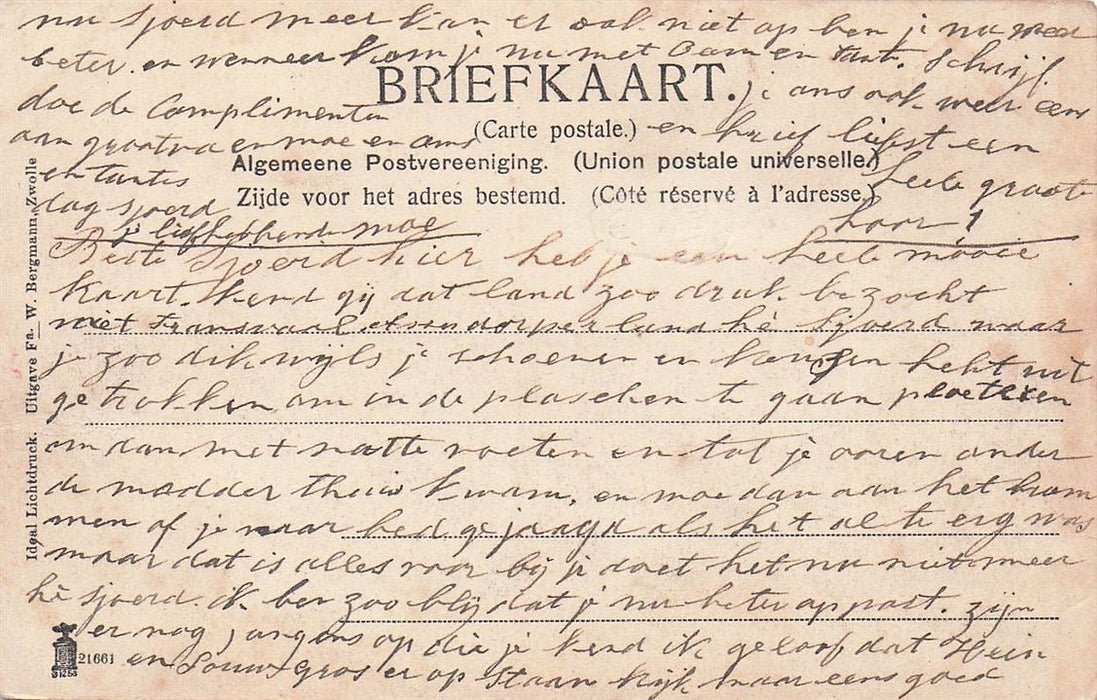 nu Sjoerd meer kan er ook niet op ben je nu weer
beter en wenneer kom je nu met Oom en tante. Schrijf
BRIEFKAART.
je ons ook weer eens
doe de Complimenten
(Carte postale.)
en brief liefst een
aan grootva en moe en oms
Algemeene Postvereeniging. (Union postale universelle.)
en tantes
heele groote
Zijde voor het adres bestemd. (Côté réservé à l'adresse.)
dag Sjoerd
hoor!
je liefhebbende moe
Beste Sjoerd hier heb je een heele mooie
kaart. kend gij dat land zoo druk bezocht
niet transvaal dorper land hè Sjoerd waar
je zoo dikwijls je schoenen en kousen hebt uit
getrokken om in de plasschen te gaan ploeteren
om dan met natte voeten en tot je ooren onder
de modder thuis kwam, en moe dan aan het brom
men of je naar bed gejaagd als het al te erg was
maar dat is alles voor bij je doet het nu niet meer
hè Sjoerd. ik ben zoo blij dat je nu beter oppast. zijn
er nog jongens op die je kend ik geloof dat Hein
en Gros er op staan kijk maar eens goed
Ideal Lichtdruck. Uitgave Fa. W. Bergmann, Zwolle
21661